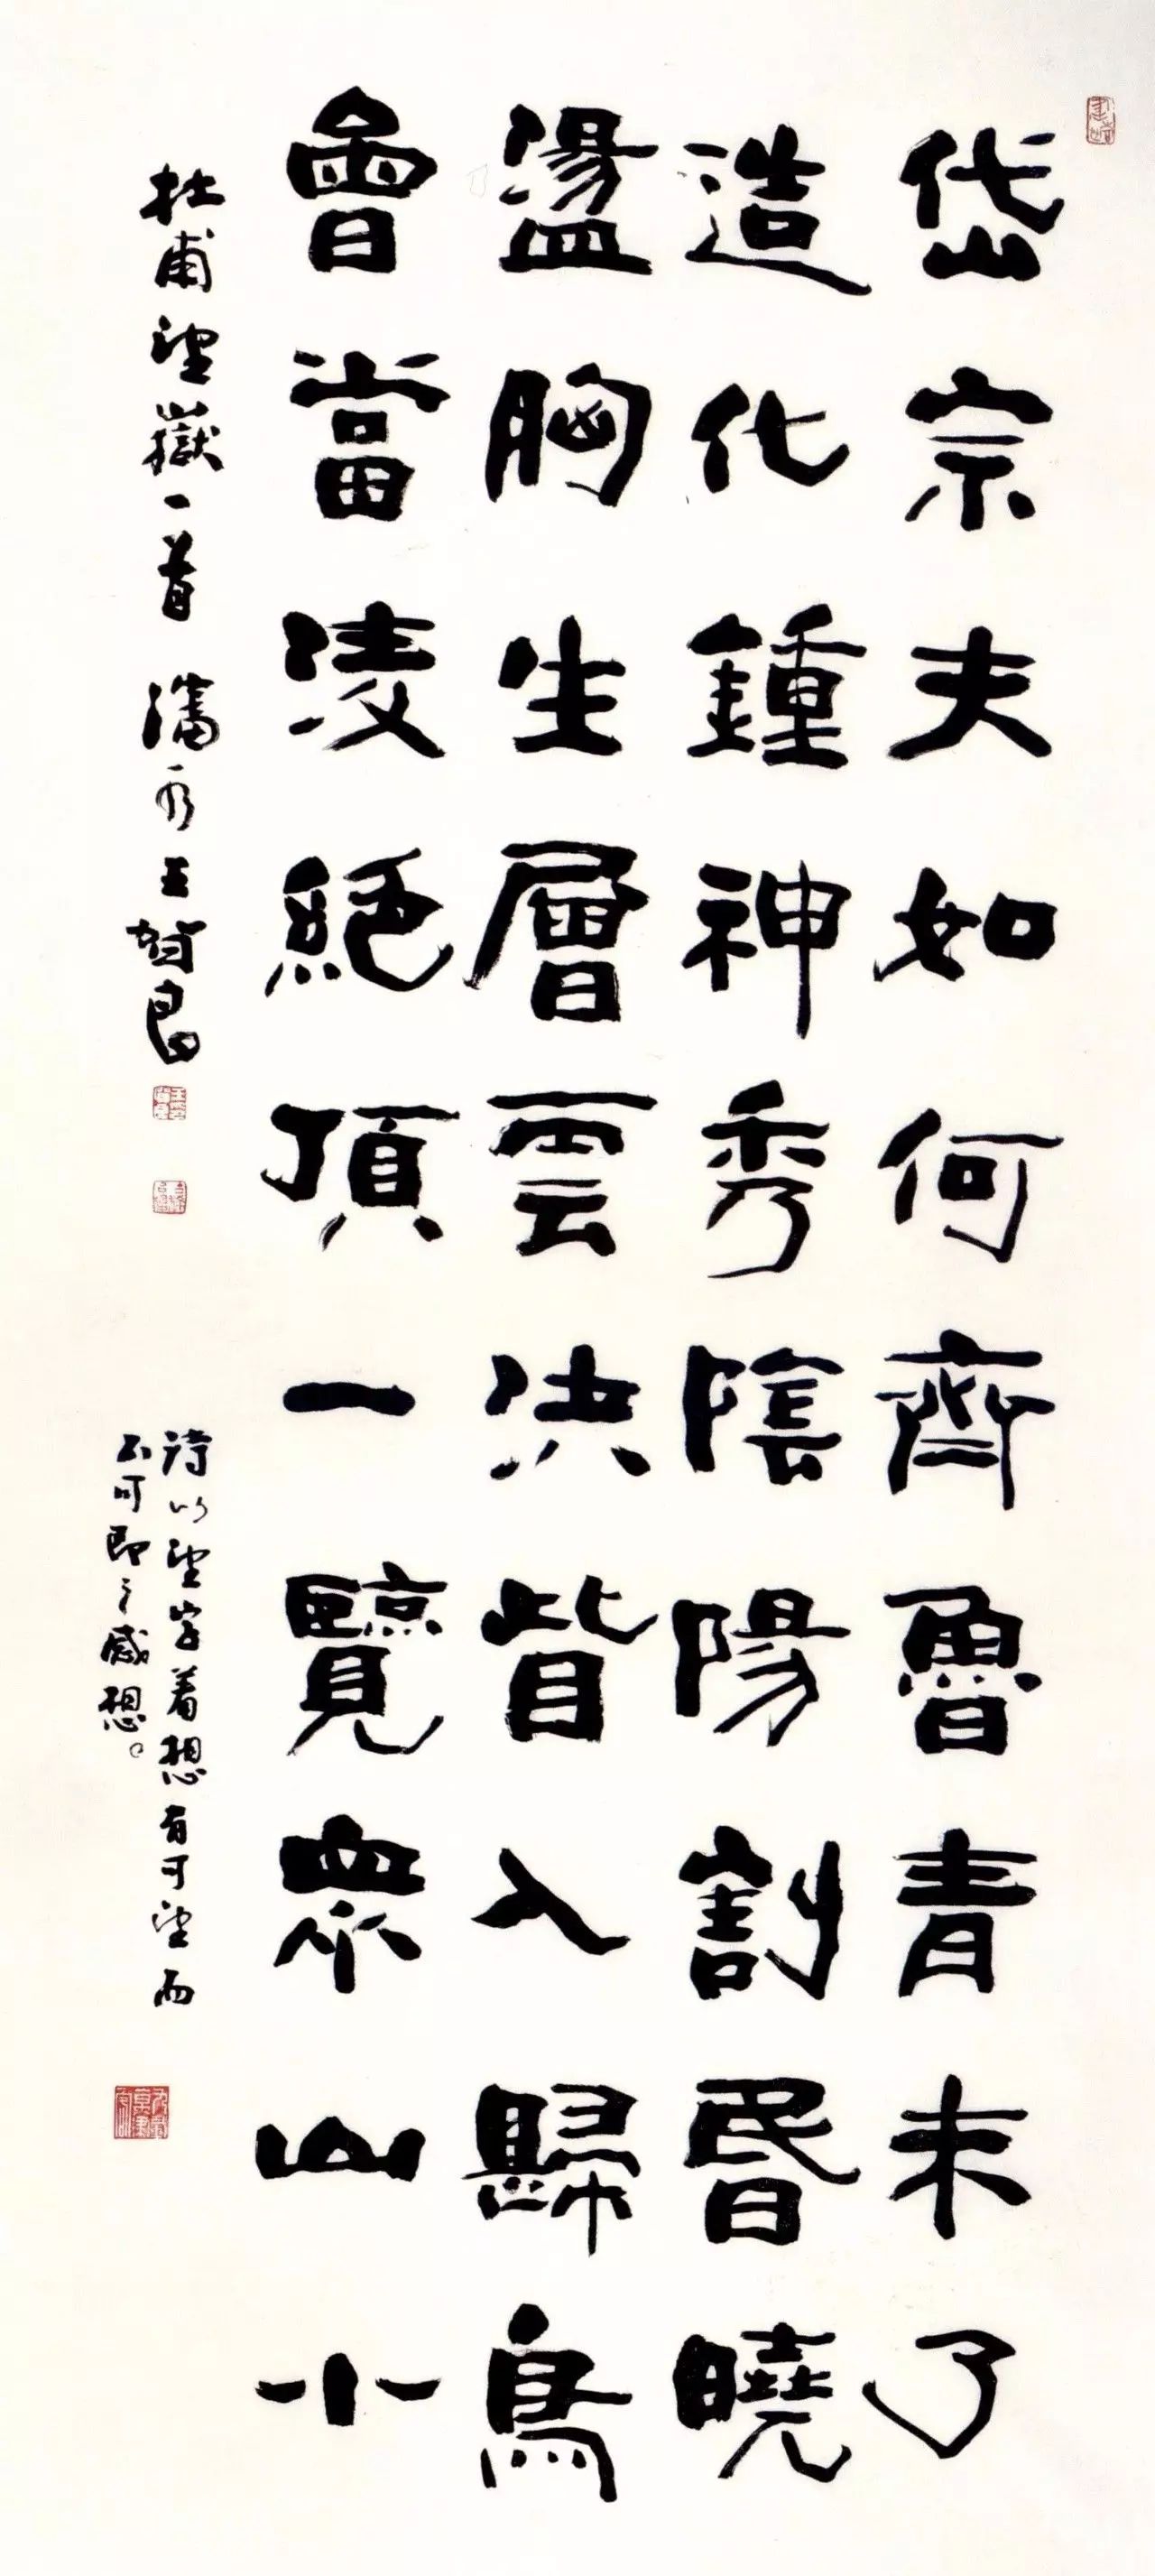 岱宗夫如何齊魯青未了
造化鍾神秀陰陽割昏曉
盪胸生層雲決眥入歸鳥
會當凌絕頂一覽眾山小
杜甫望嶽一首 潘永王賀良
詩以望字着想有可望而
不可即之感想。